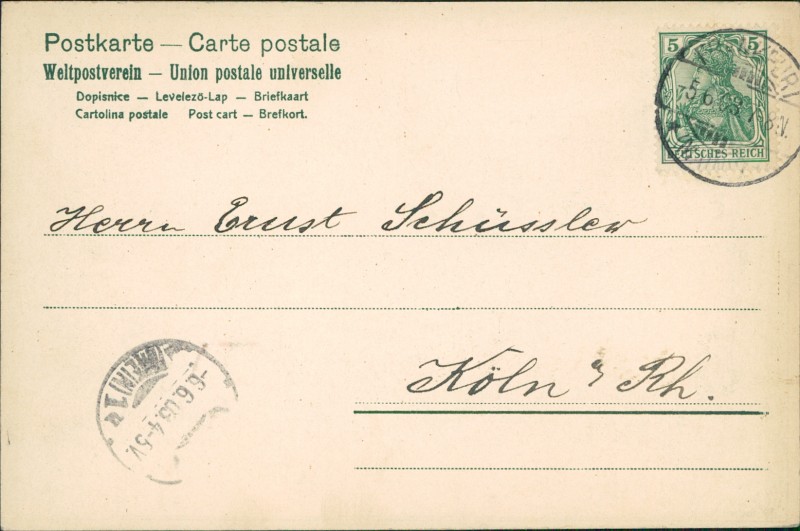 Postkarte — Carte postale
Weltpostverein — Union postale universelle
Dopisnice — Levelező-Lap — Briefkaart
Cartolina postale Post cart — Brefkort.
5 5
DEUTSCHES REICH
5.6.03.7-8V.
Herrn Ernst Schüssler
Köln a/ Rh.
(RHEIN) 1
6.6.03.4-5V.